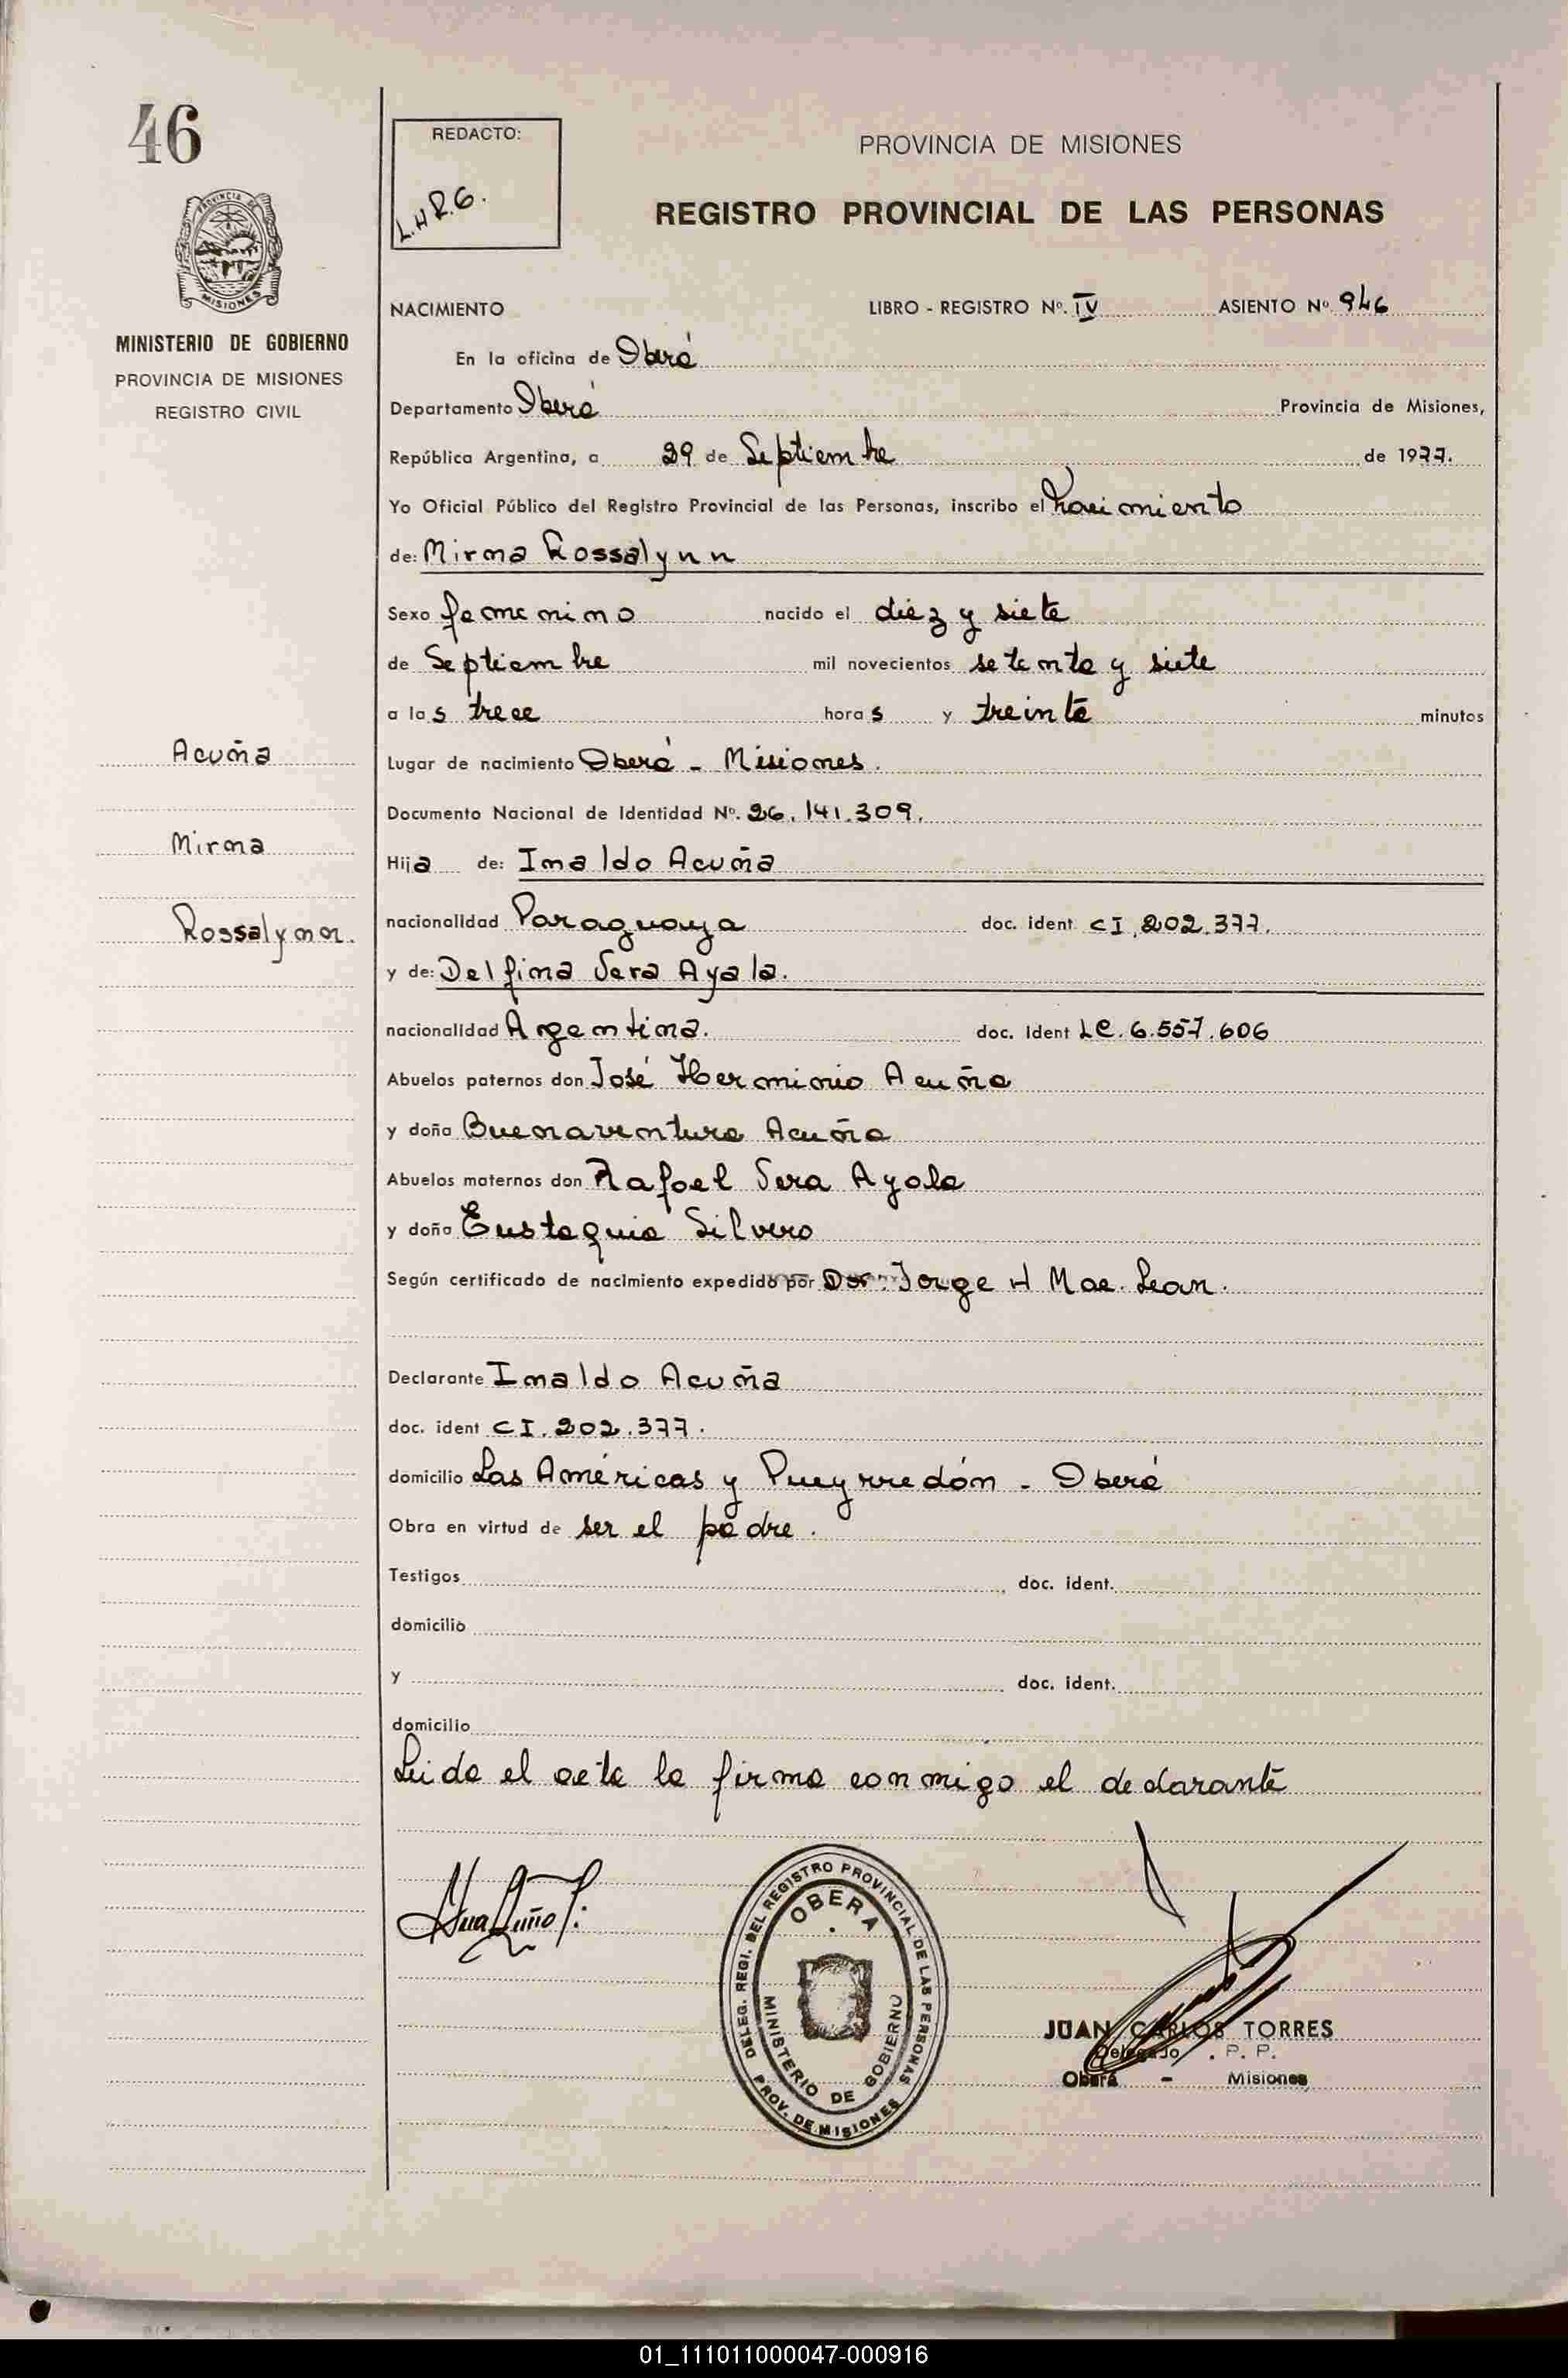 46
REDACTO:
L.H.R.G.
PROVINCIA DE MISIONES
REGISTRO PROVINCIAL DE LAS PERSONAS
PROVINCIA DE
MISIONES
MINISTERIO DE GOBIERNO
PROVINCIA DE MISIONES
REGISTRO CIVIL
NACIMIENTO LIBRO - REGISTRO Nº. IV ASIENTO Nº 946
En la oficina de Oberá
Departamento Oberá Provincia de Misiones,
República Argentina, a 29 de Septiembre de 1977.
Yo Oficial Público del Registro Provincial de las Personas, inscribo el Nacimiento
de: Mirma Rossalynn
Sexo femenino nacido el diez y siete
de Septiembre mil novecientos setenta y siete
a las trece horas y treinta minutos
Acuña
Lugar de nacimiento Oberá - Misiones.
Documento Nacional de Identidad Nº. 26.141.309.
Mirma
Hija de: Imaldo Acuña
Rossalynn.
nacionalidad Paraguaya doc. ident CI, 202.377.
y de: Delfina Vera Ayala.
nacionalidad Argentina. doc. Ident LC. 6.557.606
Abuelos paternos don José Herminio Acuña
y doña Buenaventura Acuña
Abuelos maternos don Rafael Vera Ayala
y doña Eustaquia Silvero
Según certificado de nacimiento expedido por Dor. Jorge H Mac. Lean.
Declarante Imaldo Acuña
doc. ident CI. 202.377.
domicilio Las Américas y Pueyrredón - Oberá
Obra en virtud de ser el padre.
Testigos doc. ident.
domicilio
y doc. ident.
domicilio
Leida el acta la firma conmigo el declarante
DELEG. REGI. DEL REGISTRO PROVINCIAL DE LAS PERSONAS
OBERA
MINISTERIO DE GOBIERNO
PROV. DE MISIONES
JUAN CARLOS TORRES
Delegado . P. P.
Oberá - Misiones
01_111011000047-000916